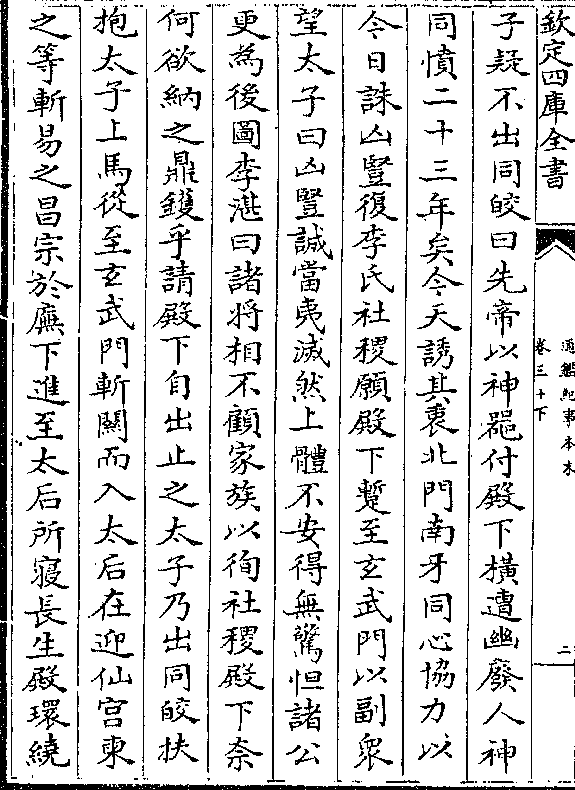 欽定四庫全書
通鑑紀事本末
卷三十下
二
子疑不出同皎曰先帝以神器付殿下橫遭幽廢人神
同憤二十三年矣今天誘其衷北門南牙同心協力以
今日誅凶豎復李氏社稷願殿下蹔至玄武門以副衆
望太子曰凶豎誠當夷滅然上體不安得無驚怛諸公
更為後圖李湛曰諸將相不顧家族以徇社稷殿下奈
何欲納之鼎鑊乎請殿下自出止之太子乃出同皎扶
抱太子上馬從至玄武門斬關而入太后在迎仙宫東
之等斬易之昌宗於廡下進至太后所寢長生殿環繞